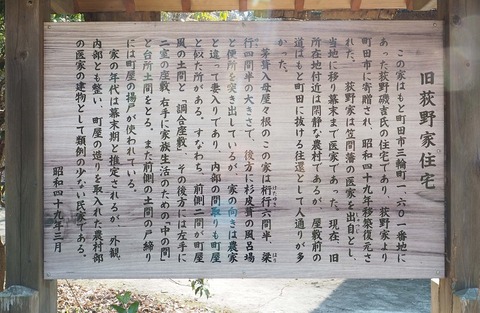 旧荻野家住宅
この家はもと町田市三輪町一、六〇一番地に
あった荻野磯吉氏の住宅であり、荻野家より
町田市に寄贈され、昭和四十九年移築復元さ
れた。 荻野家は笠間藩の医家を出自とし、
当地に移り幕末まで医家であった。現在、旧
所在地付近は閑静な農村であるが、屋敷前の
道はもと町田に抜ける往還として人通りが多
かった。
茅葺入母屋屋根のこの家は桁行六間半、梁
行四間半の大きさで、後方に杉皮葺の風呂場
と便所を突き出しているが、家の向きは農家
と違って妻入りであり、内部の間取りも町屋
と似た所がある。すなわち、前側二間が町屋
風の土間と「調合座敷」、その後方には左手に
二室の座敷、右手に家族生活のための「中の間」
と台所土間をとる。また前側の土間の戸締り
には町屋の揚戸が使われている。
家の年代は幕末期と推定されるが、外観、
内部とも整い、町屋の造りを取入れた農村部
の医家の建物として類例の少ない民家である。
昭和四十九年三月